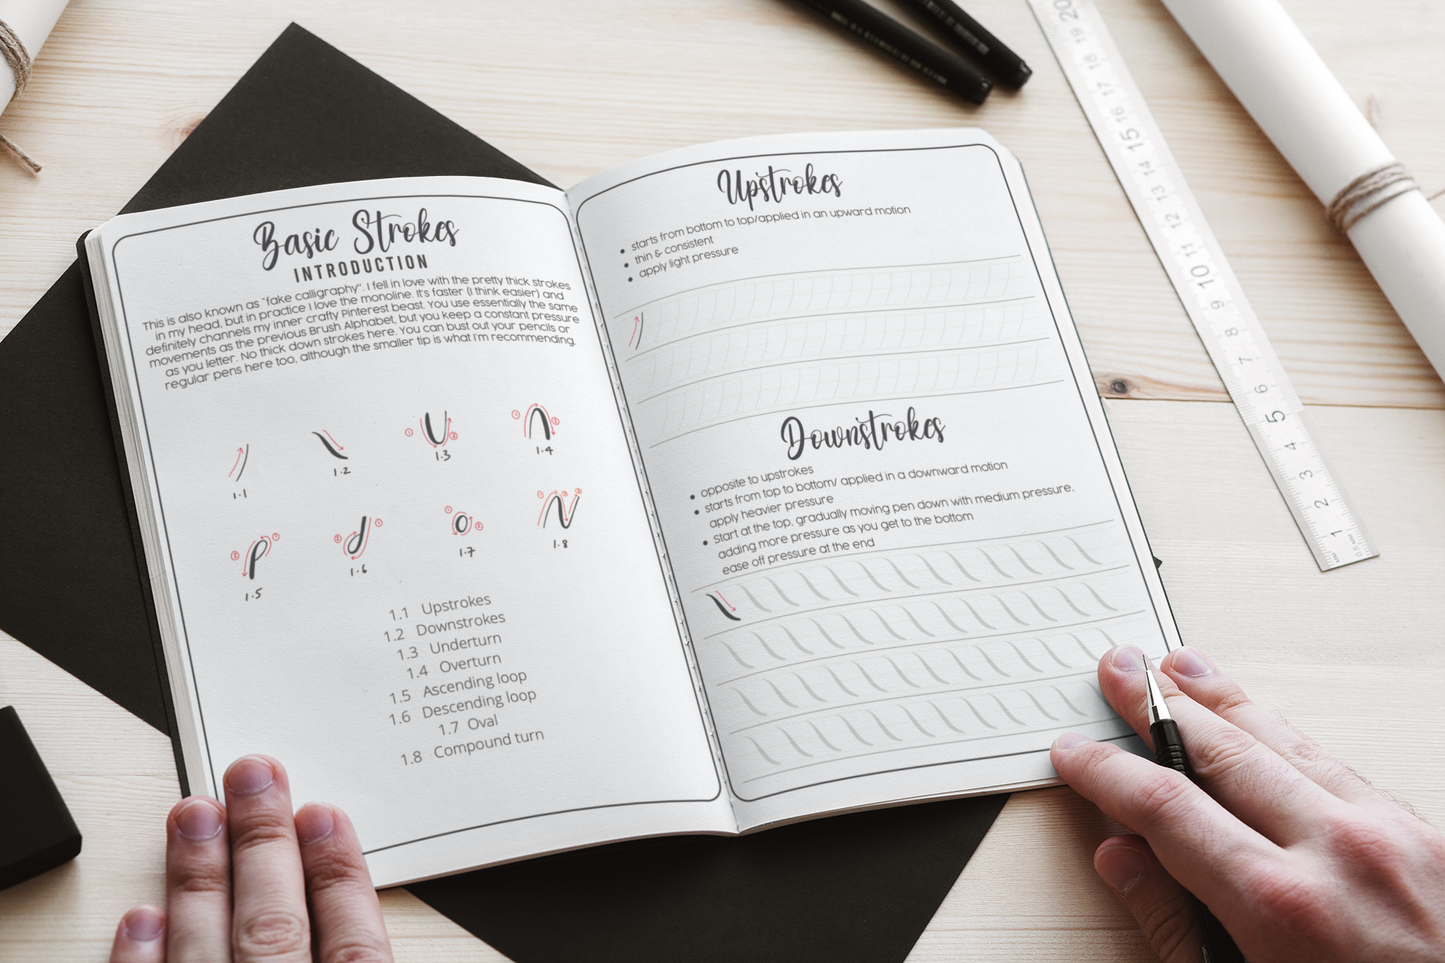 Basic Strokes
INTRODUCTION
This is also known as "fake calligraphy". I fell in love with the pretty thick strokes
in my head, but in practice I love the monoline. It's faster (I think easier) and
definitely channels my inner crafty Pinterest beast. You use essentially the same
movements as the previous Brush Alphabet, but you keep a constant pressure
as you letter. No thick down strokes here. You can bust out your pencils or
regular pens here too, although the smaller tip is what I'm recommending.
1.1
1.2
1 2
1.3
1 2
1.4
2 1
1.5
1
1.6
1 2
1.7
1 2 3
1.8
1.1 Upstrokes
1.2 Downstrokes
1.3 Underturn
1.4 Overturn
1.5 Ascending loop
1.6 Descending loop
1.7 Oval
1.8 Compound turn
Upstrokes
• starts from bottom to top/applied in an upward motion
• thin & consistent
• apply light pressure
Downstrokes
• opposite to upstrokes
• starts from top to bottom/ applied in a downward motion
apply heavier pressure
• start at the top, gradually moving pen down with medium pressure,
adding more pressure as you get to the bottom
ease off pressure at the end
20 19 18 17 16 15 14 13 12 11 10 9 8 7 6 5 4 3 2 1
0.5 mm